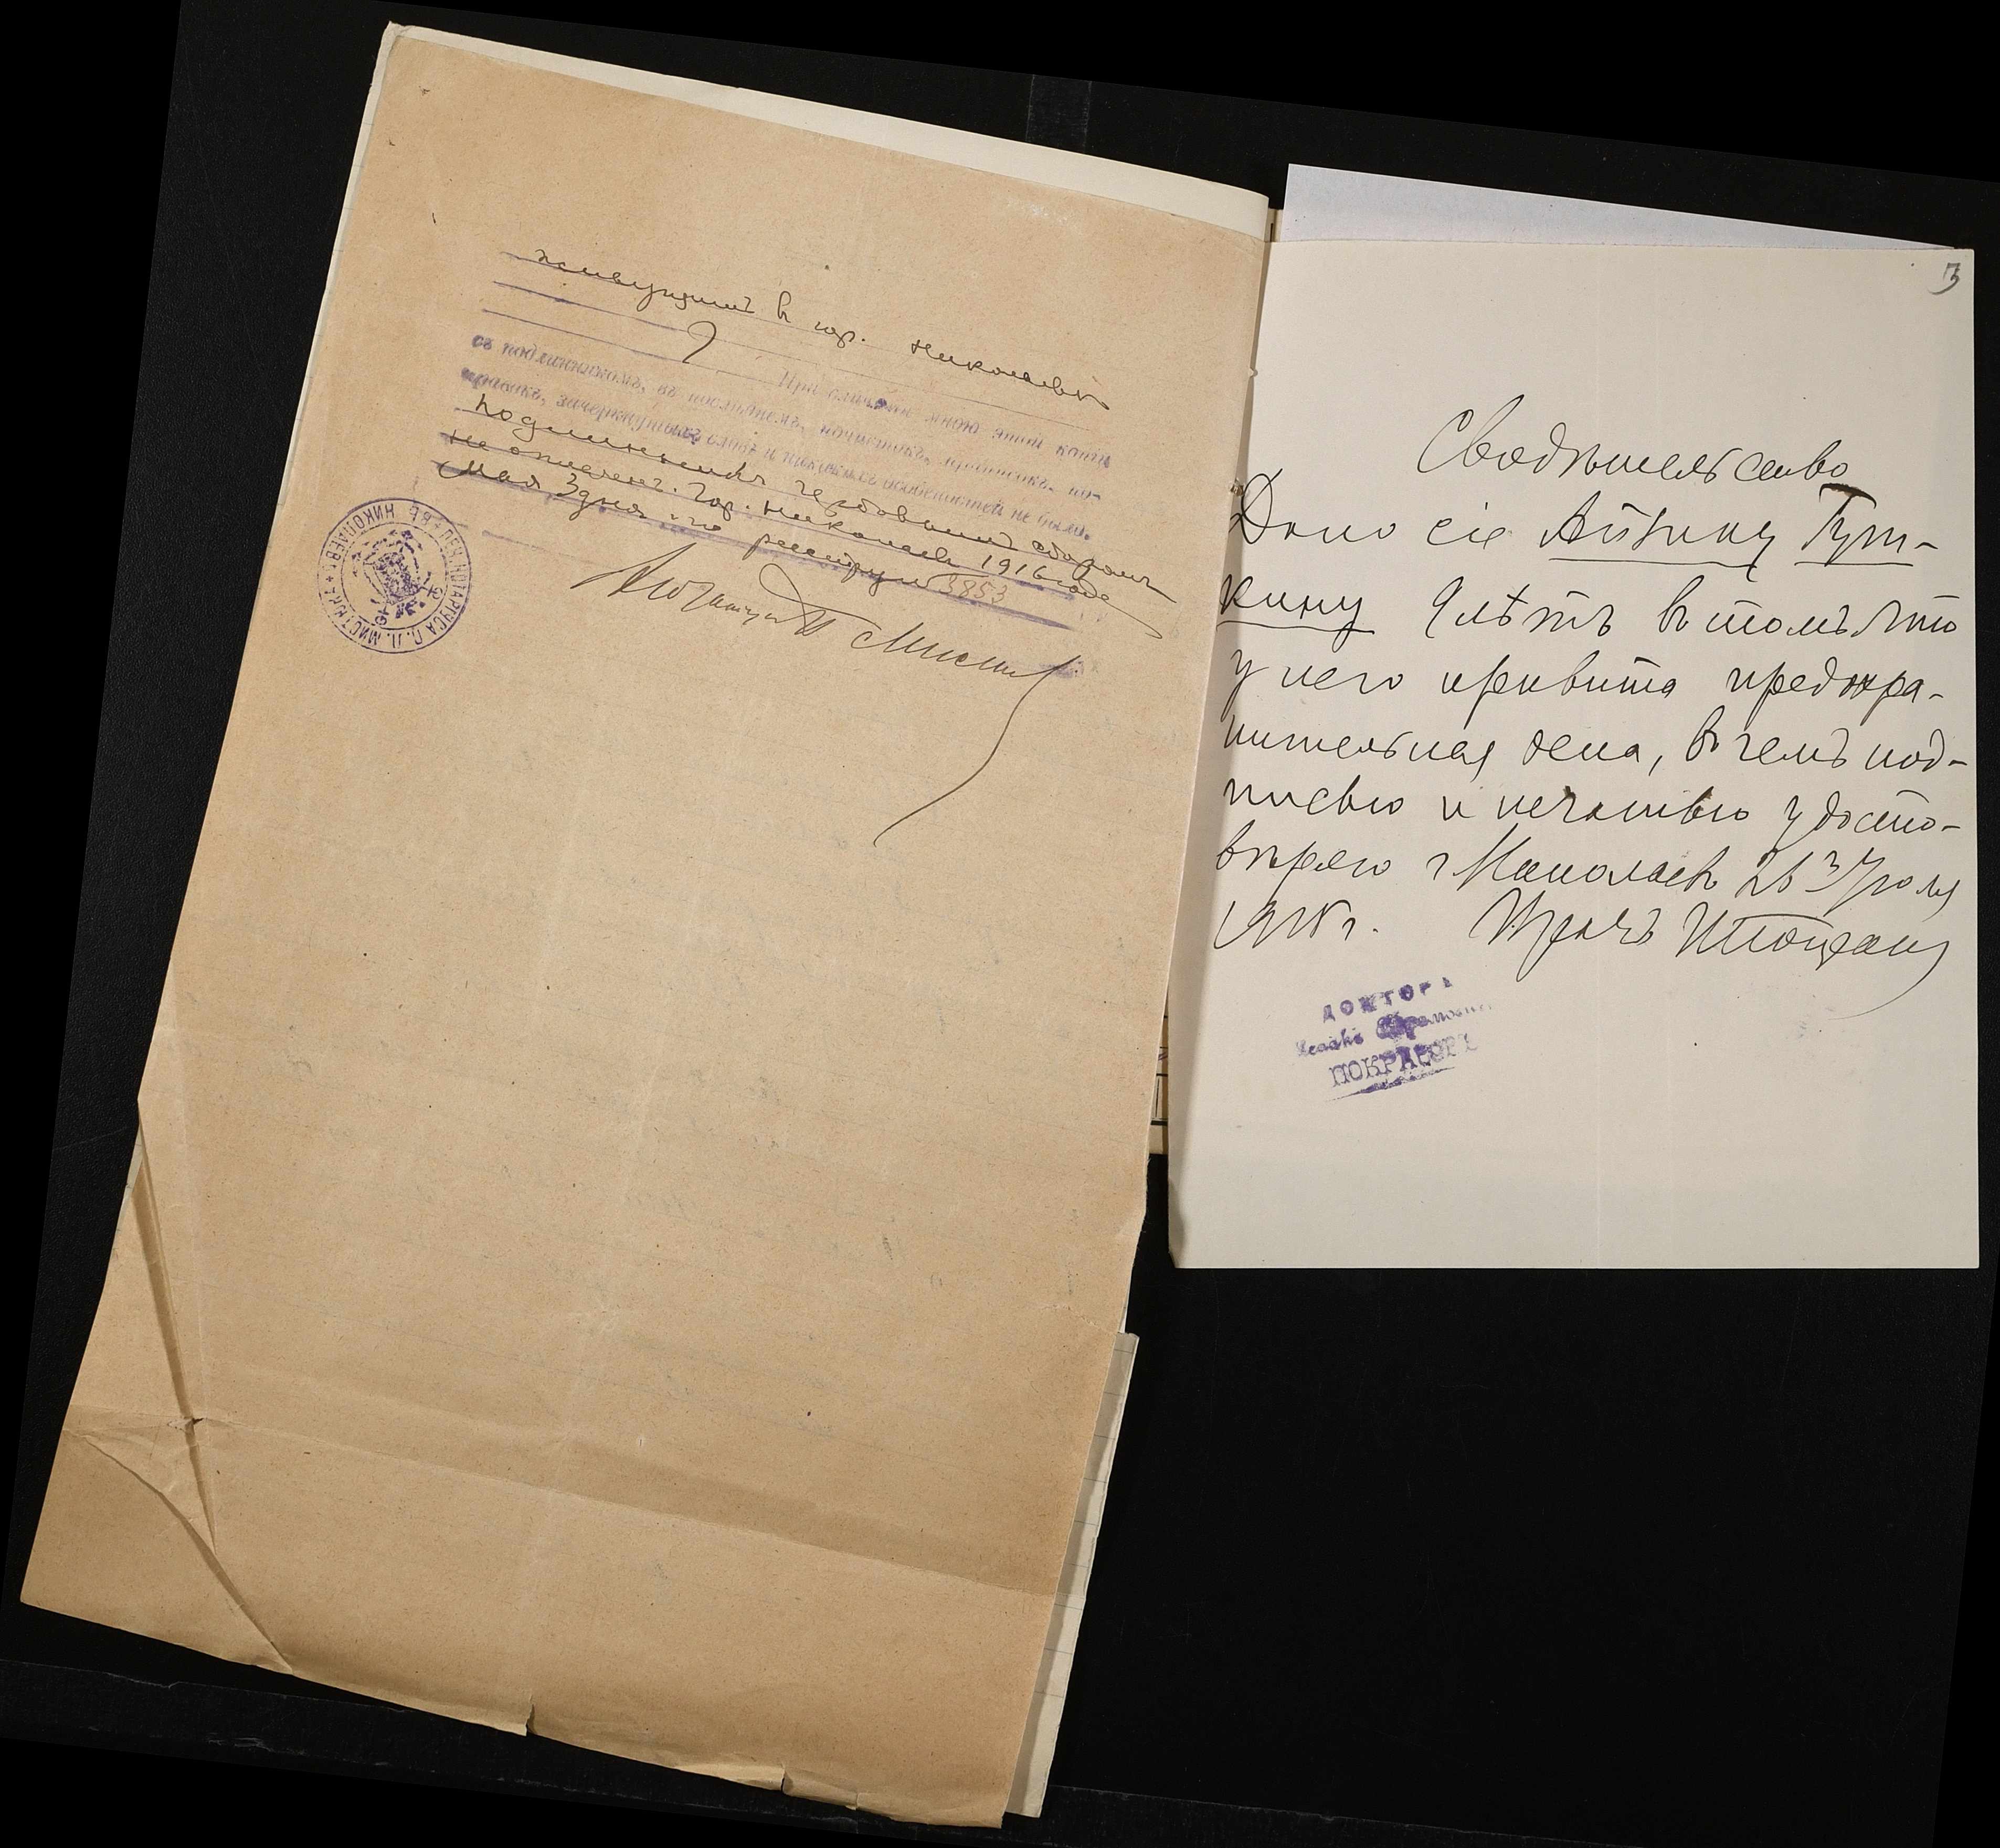 живущимъ въ гор. Николаевѣ
При сличеніи мною этой копіи
съ подлинникомъ, въ послѣднемъ, почистокъ, приписокъ, по-
правокъ, зачеркнутыхъ словъ и никакихъ особенностей не было.
Подлинникъ гербовымъ сборомъ
не оплаченъ. Гор. Николаевъ 1916 года
Мая 3 дня по реестру № 3853
Нотаріусъ П. Мисти
НОТАРІУСА П. Л. МИСТ ВЪ НИКОЛАЕВѢ
3
Свидѣтельство
Дано сіе Айзику Гут-
кину 9 лѣтъ въ томъ что
у него привита предохра-
нительная оспа, въ чемъ под-
писью и печатью удосто-
вѣряю г Николаевъ 26 Іюля
191 г. Врачъ
ДОКТОРЪ
Исаакъ Абрамовичъ